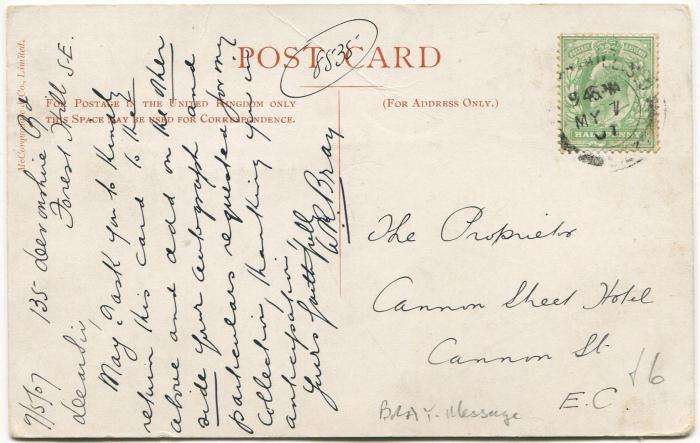 POST CARD
FOR POSTAGE IN THE UNITED KINGDOM ONLY
THIS SPACE MAY BE USED FOR CORRESPONDENCE.
(FOR ADDRESS ONLY.)
McCorquodale & Co., Limited.
8535
135 Devonshire Rd
Forest Hill S.E.
7/5/07
Dear Sir,
May I ask you to kindly
return this card to the
above and add on the other
side your autograph and
particulars requested for my
collection, thanking you in
anticipation
Yours faithfully
W R Bray
The Proprietor
Cannon Street Hotel
Cannon St.
E.C
£6
BRAY - Message
9 45 PM
MY 7
07
HALFPENNY